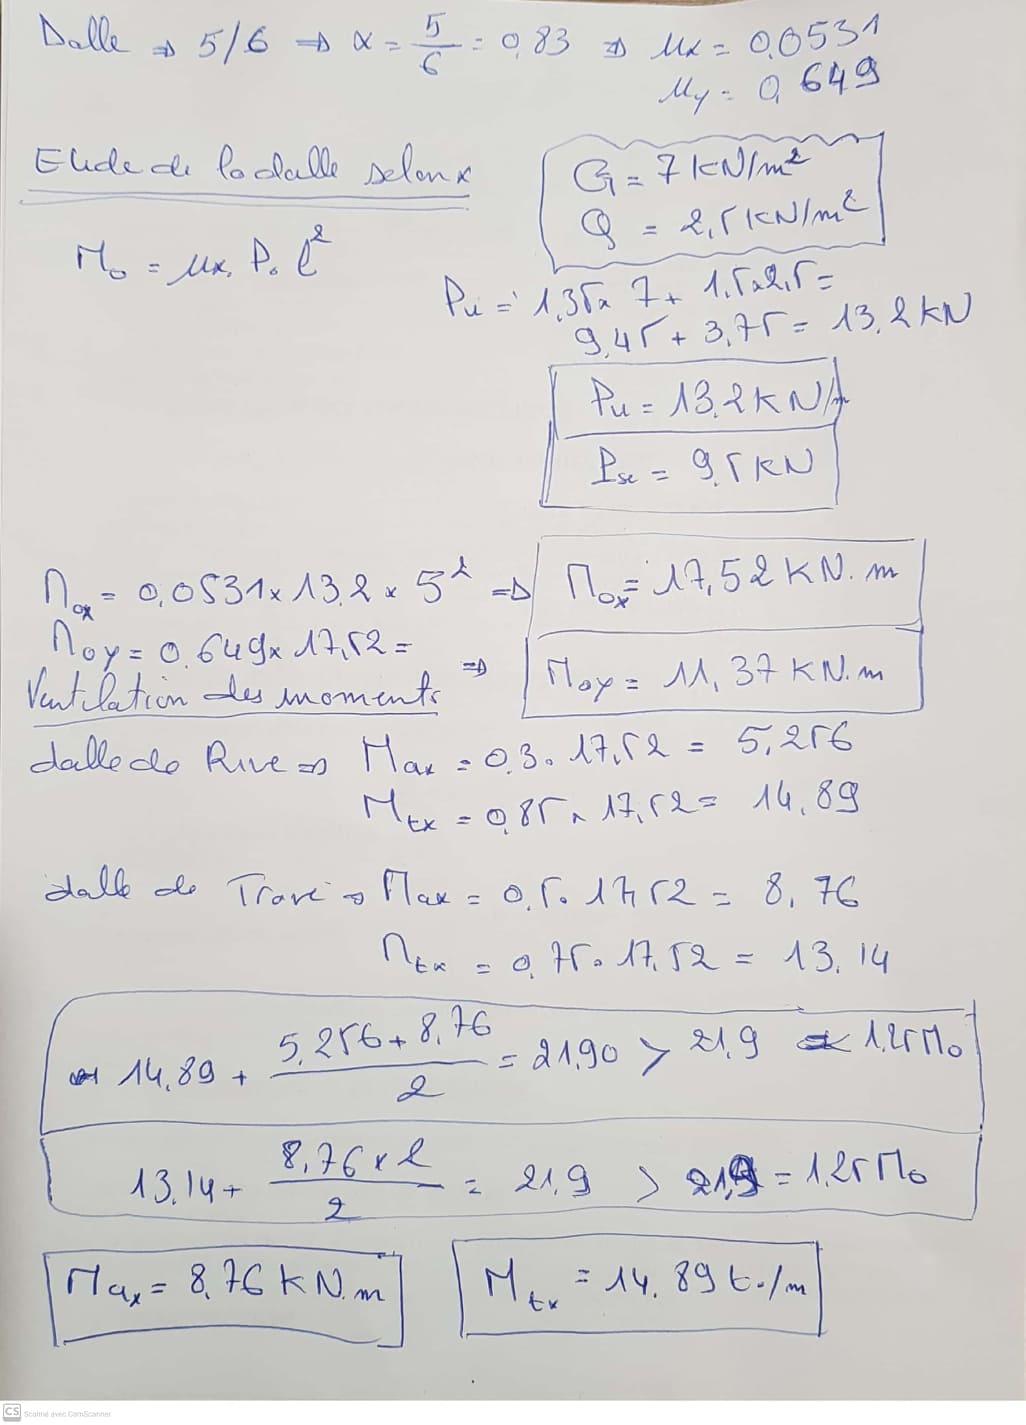 Dalle ⇒ 5/6 ⇒ α = 5/6 = 0,83 ⇒ μx = 0,0531
μy = 0,649
Etude de la dalle selon x
G = 7 KN/m²
Q = 2,5 KN/m²
M₀ = μx. P. l²
Pu = 1,35x 7 + 1,5x2,5 =
9,45 + 3,75 = 13,2 KN
Pu = 13,2 KN/m
Pse = 9,5 KN
Mox = 0,0531 x 13,2 x 5² ⇒ Mox = 17,52 KN.m
Moy = 0,649 x 17,52 = ⇒ Moy = 11,37 KN.m
Ventilation des moments
dalle de Rive ⇒ Max = 0,3. 17,52 = 5,256
Mtx = 0,85 x 17,52 = 14,89
dalle de Travé ⇒ Max = 0,5. 17,52 = 8,76
Mtx = 0,75. 17,52 = 13,14
14,89 + (5,256 + 8,76)/2 = 21,90 > 21,9 = 1,25 M₀
13,14 + (8,76 x 2)/2 = 21,9 > 21,9 = 1,25 M₀
Max = 8,76 KN.m
Mtx = 14,89 t./m
CS Scanné avec CamScanner